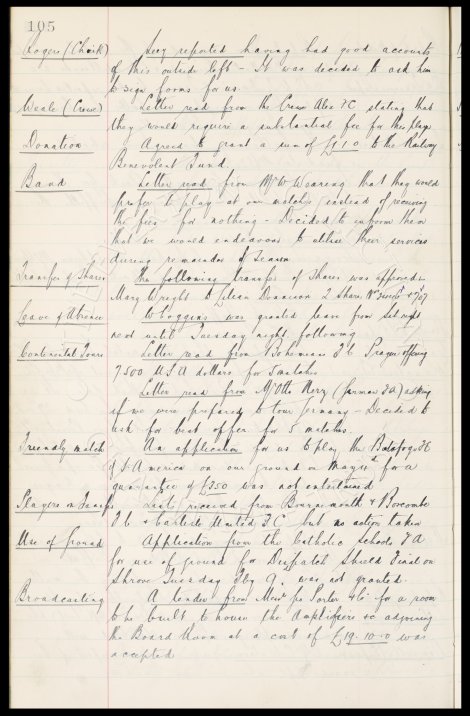 105
Rogers (Chirk) Secy reported having had good accounts
of this outside left - It was decided to ask him
to sign forms for us.
Weale (Crewe) Letter read from the Crewe Alex FC stating that
they would require a substantial fee for this player
Donation Agreed to grant a sum of £1.1.0 to the Railway
Benevolent Fund.
Band Letter read from Mr W Woaring that they would
prefer to play at our matches instead of receiving
the fees for nothing - Decided to inform them
that we would endeavour to utilise their services
during remainder of Season
Transfer of Shares The following transfer of Shares was approved -
Mary Wright to Eileen Donnison 2 Shares Nos
Leave of Absence W Coggins was granted leave from Sat night
next until Tuesday night following
Continental Tours Letter read from Bohemians Fb Prague offering
7500 USA dollars for 5 matches
Letter read from Mr Otto Nerz (German FA) asking
if we were prepared to tour Germany - Decided to
ask for best offer for 5 matches.
Friendly match An application for us to play the Botafogo FC
of S. America on our ground on May for a
guarantee of £350 was not entertained
Players on Transfer List received from Bournemouth & Boscombe
Fb & Carlisle United FC but no action taken
Use of Ground Application from the Catholic Schools FA
for use of ground for Dispatch Shield Final on
Shrove Tuesday Feby 9. was not granted.
Broadcasting A tender from Messrs Jas Porter & Co for a room
to be built to house the Amplifiers &c adjoining
the Board Room at a cost of £19.10.0 was
accepted